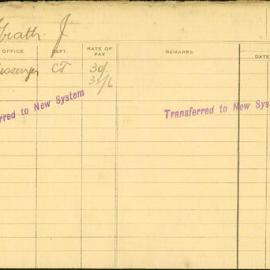 J
OFFICE DEPT. RATE OF PAY REMARKS DAT
CT 30/
rred to New System Transferred to New Sys